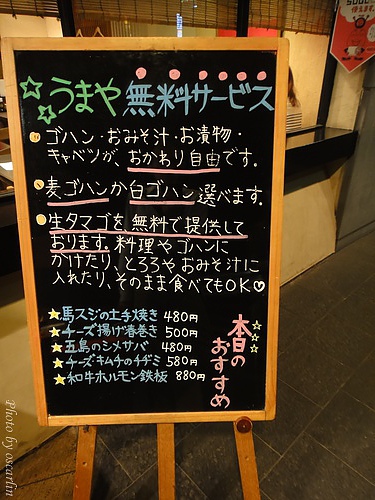 うまや 無料サービス
ゴハン・おみそ汁・お漬物・
キャベツが、おかわり自由です。
麦ゴハンか白ゴハン選べます。
生タマゴを、無料で提供して
おります。料理やゴハンに
かけたり、とろろやおみそ汁に
入れたり、そのまま食べてもOK♡
本日のおすすめ
★馬スジの土手焼き 480円
★チーズ揚げ春巻き 500円
★五島のシメサバ 480円
★チーズキムチのチヂミ 580円
★和牛ホルモン鉄板 880円
Photo by oscarlin